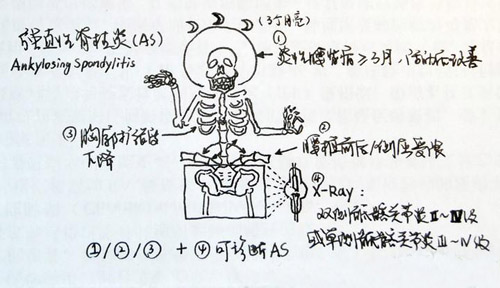 强直性脊柱炎(AS)
Ankylosing Spondylitis
(3个月亮)
①
炎性腰背痛≥3月,活动后改善
②
腰椎前后/侧屈受限
③胸廓扩张度
下降
④
X-Ray:
双侧骶髂关节炎Ⅱ~Ⅳ级
或单侧骶髂关节炎Ⅲ~Ⅳ级
①/②/③ + ④可诊断AS